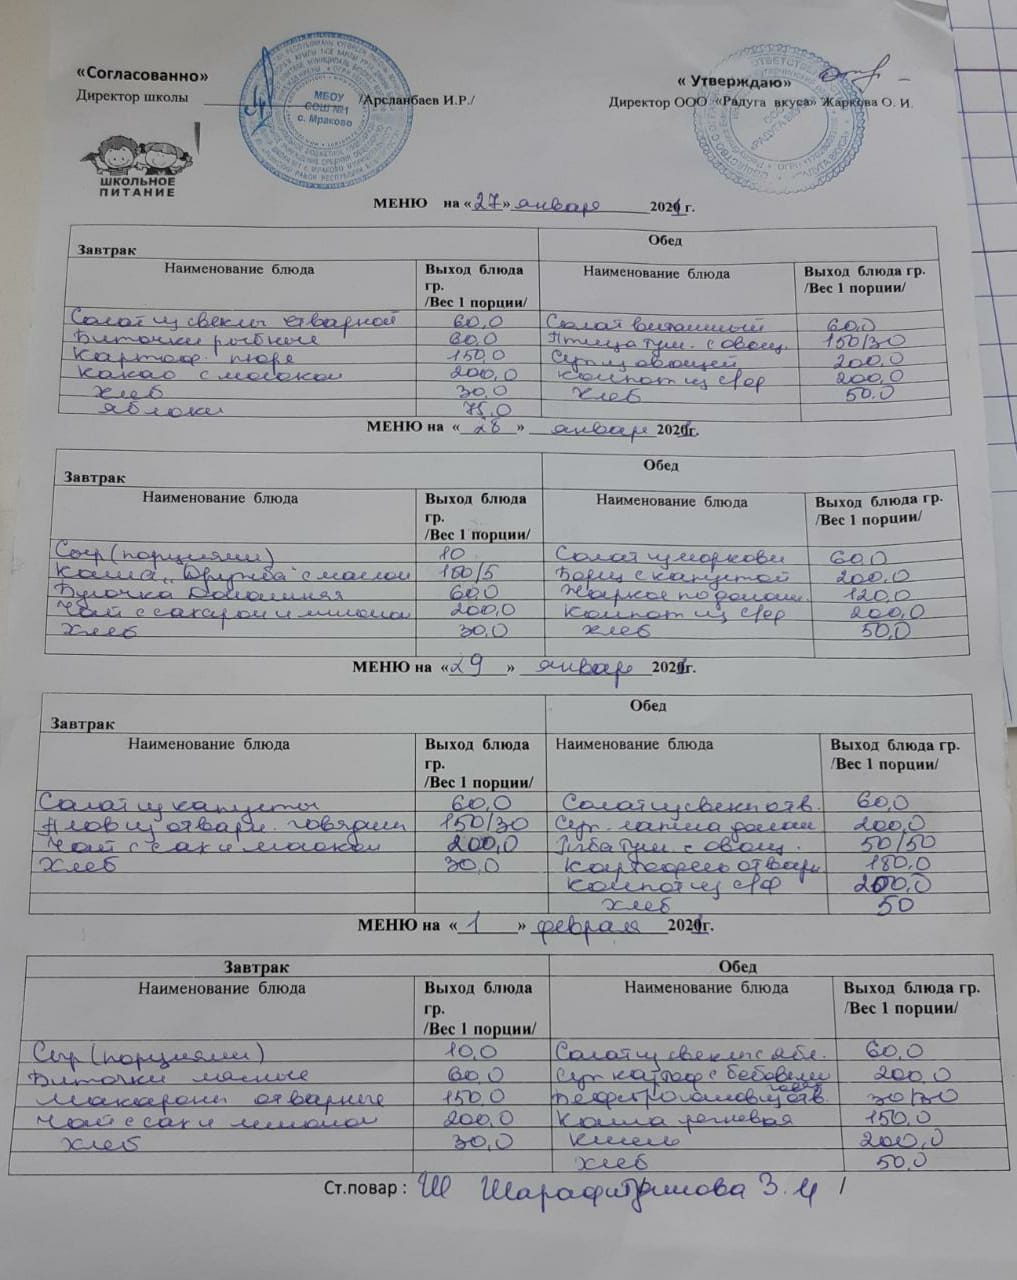 «Согласованно»
Директор школы /Арсланбаев И.Р./
МБОУ
СОШ №1
с. Мраково
« Утверждаю»
Директор ООО «Радуга вкуса» Жаркова О. И.
ШКОЛЬНОЕ
ПИТАНИЕ
МЕНЮ на «27» января 2021 г.
Завтрак Обед
Наименование блюда Выход блюда гр. /Вес 1 порции/ Наименование блюда Выход блюда гр. /Вес 1 порции/
Салат из свеклы отварной 60,0 Салат витаминный 60,0
Биточки рыбные 60,0 Птица туш. с овощ. 150/30
Картоф. пюре 150,0 Суп из овощей 200,0
Какао с молоком 200,0 Компот из с/фр 200,0
Хлеб 30,0 Хлеб 50,0
Яблоки 75,0
МЕНЮ на «28» января 2021г.
Завтрак Обед
Наименование блюда Выход блюда гр. /Вес 1 порции/ Наименование блюда Выход блюда гр. /Вес 1 порции/
Сыр (порциями) 10 Салат из моркови 60,0
Каша „Дружба" с маслом 150/5 Борщ с капустой 200,0
Булочка Домашняя 60,0 Жаркое по домаш. 120,0
Чай с сахаром и лимоном 200,0 Компот из с/фр 200,0
Хлеб 30,0 Хлеб 50,0
МЕНЮ на «29» января 2021г.
Завтрак Обед
Наименование блюда Выход блюда гр. /Вес 1 порции/ Наименование блюда Выход блюда гр. /Вес 1 порции/
Салат из капусты 60,0 Салат из свеклы отв. 60,0
Плов из отварн. говядины 150/30 Суп. лапша домаш 200,0
Чай с сах и молоком 200,0 Рыба туш. с овощ. 50/50
Хлеб 30,0 Картофель отварн 180,0
Компот из с/ф 200,0
Хлеб 50
МЕНЮ на «1» февраля 2021г.
Завтрак Обед
Наименование блюда Выход блюда гр. /Вес 1 порции/ Наименование блюда Выход блюда гр. /Вес 1 порции/
Сыр (порциями) 10,0 Салат из свеклы с ябл. 60,0
Биточки мясные 60,0 Суп картоф с бобовыми 200,0
Макароны отварные 150,0 Бефстроганов из отв. говяд 30/30
Чай с сах и лимоном 200,0 Каша гречневая 150,0
Хлеб 30,0 Кисель 200,0
Хлеб 50,0
Ст.повар : Ш /